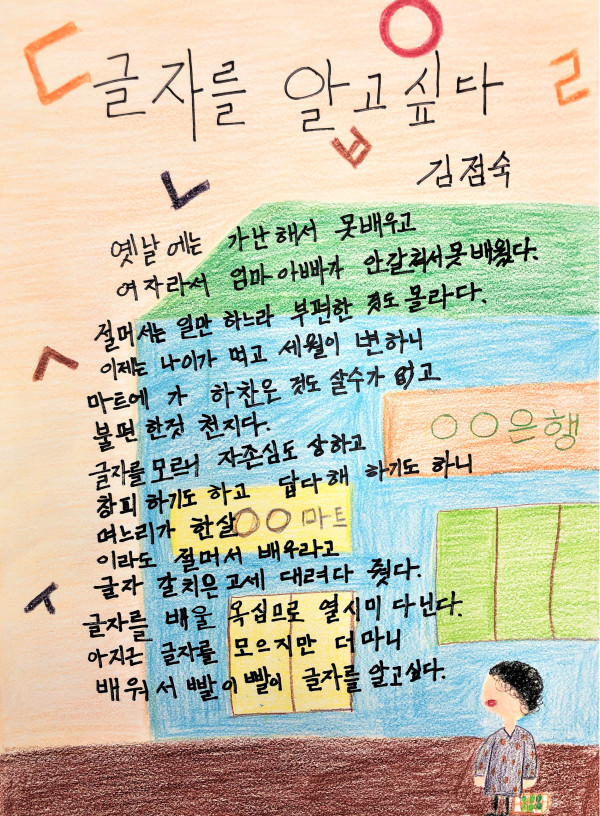 ㄷ
ㅇ
글자를 알고싶다
ㄹ
ㅂ
ㄴ
김점숙
옛날에는 가난해서 못배우고
여자라서 엄마아빠가 안갈켜서못배웠다.
절머서는 일만 하느라 부편한 것도 몰라다.
이제는 나이가 먹고 세월이 변하니
ㅅ
마트에 가 하찬은 것도 살수가 없고
불편한것 천지다.
글자를모르니 자존심도 상하고
창피하기도하고 답다해 하기도 하니
며느리가 한살
이라도 절머서 배우라고
글자 갈치은 고세 대려다 줬다.
글자를 배울 옥심므로 열시미 다닌다.
아지근 글자를 모으지만 더마니
배워서 빨이빨이 글자를 알고싶다.
ㅈ
○○은행
○○마트